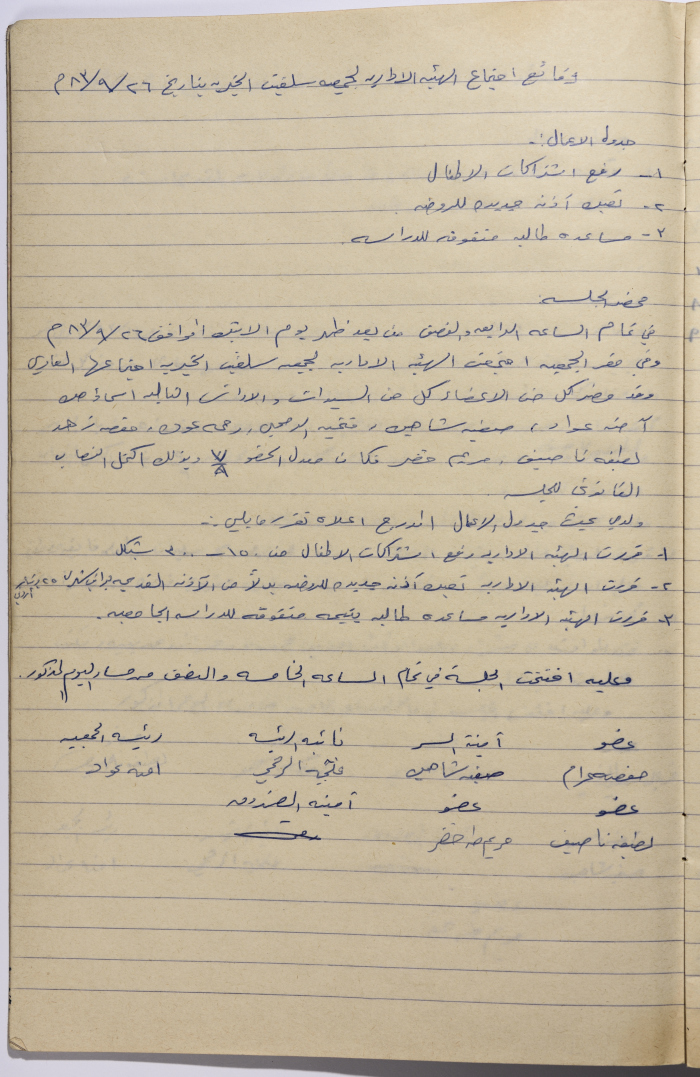 وقائع اجتماع الهيئه الاداريه لجمعيه سلفيت الخيريه بتاريخ ٢٦/٩/٨٣م
جدول الاعمال:-
١- رفع اشتراكات الاطفال
٢- تعيين آذنه جديده للروضه.
٣- مساعده طالبه متفوقه للدراسه.
محضر الجلسه:
في تمام الساعه الرابعه والنصف من بعد ظهر يوم الاثنين الموافق ٢٦/٩/٨٣م
وفي مقر الجمعيه اجتمعت الهيئه الاداريه لجمعيه سلفيت الخيريه اجتماعها العادي
وقد حضر كل من الاعضاء كل من السيدات والاوانس التاليه اسماؤهن
آمنه عواد، صفيه شاهين، فتحيه، رحمه عودة، حفصه
لطيفه ناصيف، مريم خضر فكان معدل الحضور ٧/٨ وبذلك اكتمل النصاب
القانوني للجلسه.
ولدى بحث جدول الاعمال المدرج اعلاه تقرر ما يلي:-
١- قررت الهيئه الاداريه رفع اشتراكات الاطفال من ١٥٠ - ٣٠٠ شيكل
٢- قررت الهيئه الاداريه تعيين آذنه جديده للروضه بدلاً من الآذنه القديمه ٢٥ دينار
٣- قررت الهيئه الاداريه مساعده طالبه يتيمه متفوقه للدراسه الجامعيه.
وعليه اختتمت الجلسة في تمام الساعه الخامسه والنصف من مساء اليوم المذكور.
رئيسه الجمعيه نائبه الرئيسه آمينة السر عضو
امنه عواد فتحية صفيه شاهين حفصه
آمينه الصندوق عضو عضو
مريم خضر لطيفه ناصيف